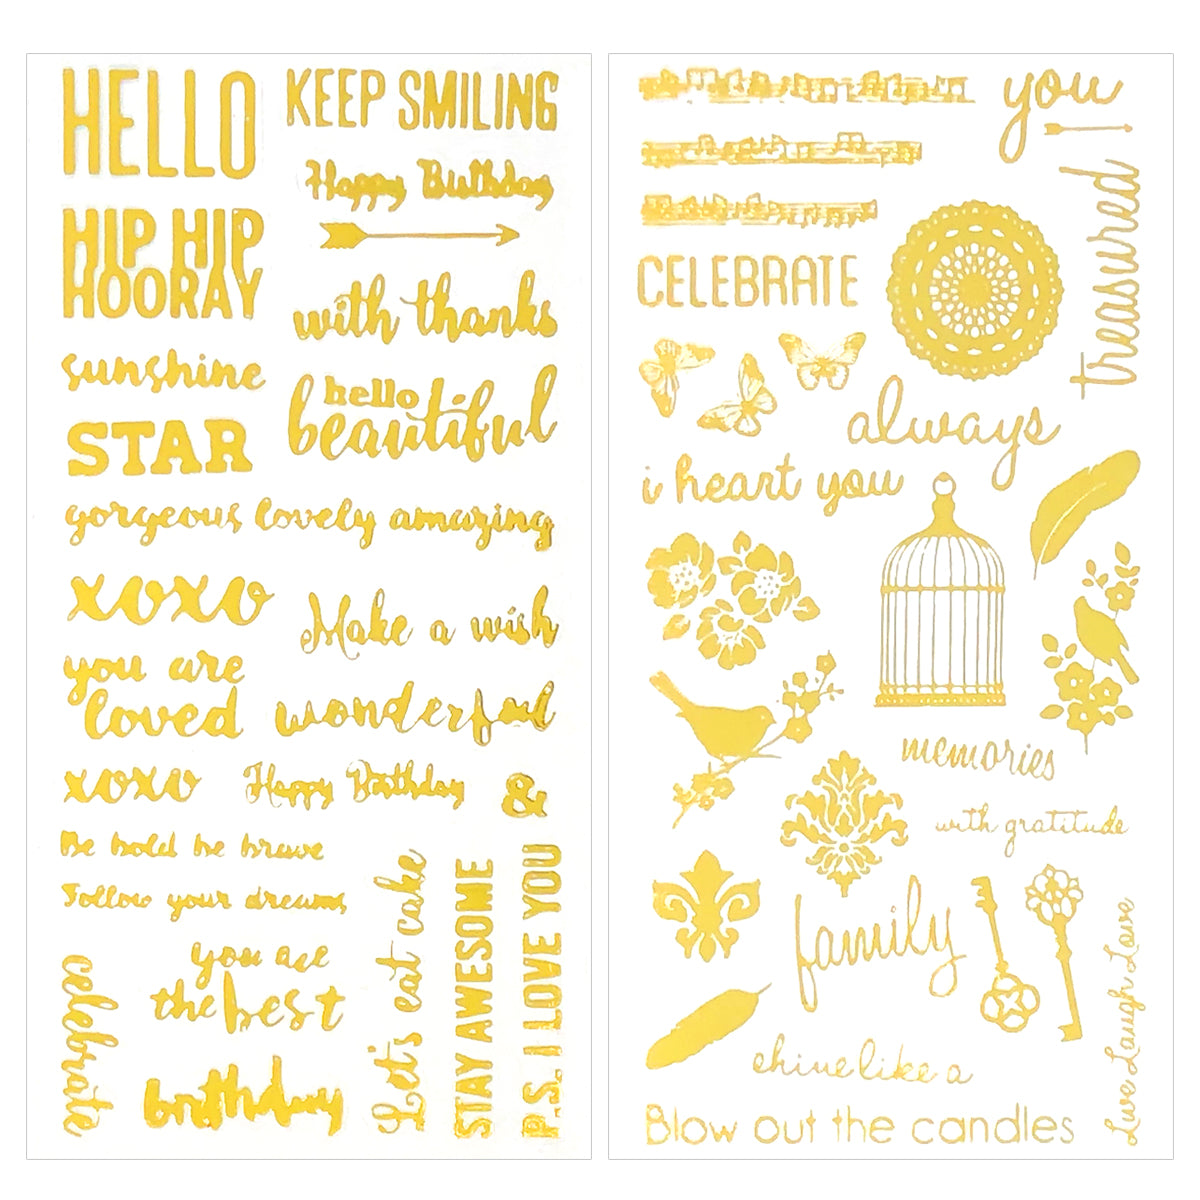 HELLO
KEEP SMILING
Happy Birthday
HIP HIP
HOORAY
with thanks
sunshine
hello
beautiful
STAR
gorgeous lovely amazing
xoxo
Make a wish
you are
loved
wonderful
xoxo
Happy Birthday
&
Be bold be brave
Follow your dreams
you are
the best
celebrate
birthday
Let's eat cake
STAY AWESOME
P.S. I LOVE YOU
you
treasured
CELEBRATE
always
i heart you
memories
with gratitude
family
Live Laugh Love
shine like a
Blow out the candles